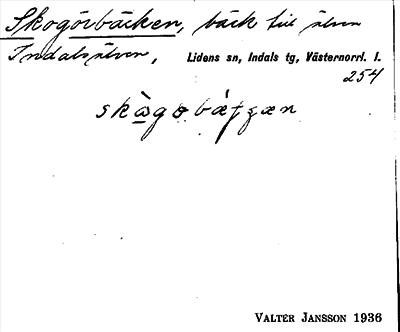 Skogörbäcken, bäck till älven
Indalsälven, Lidens sn, Indals tg, Västernorrl. l.
254
VALTER JANSSON 1936